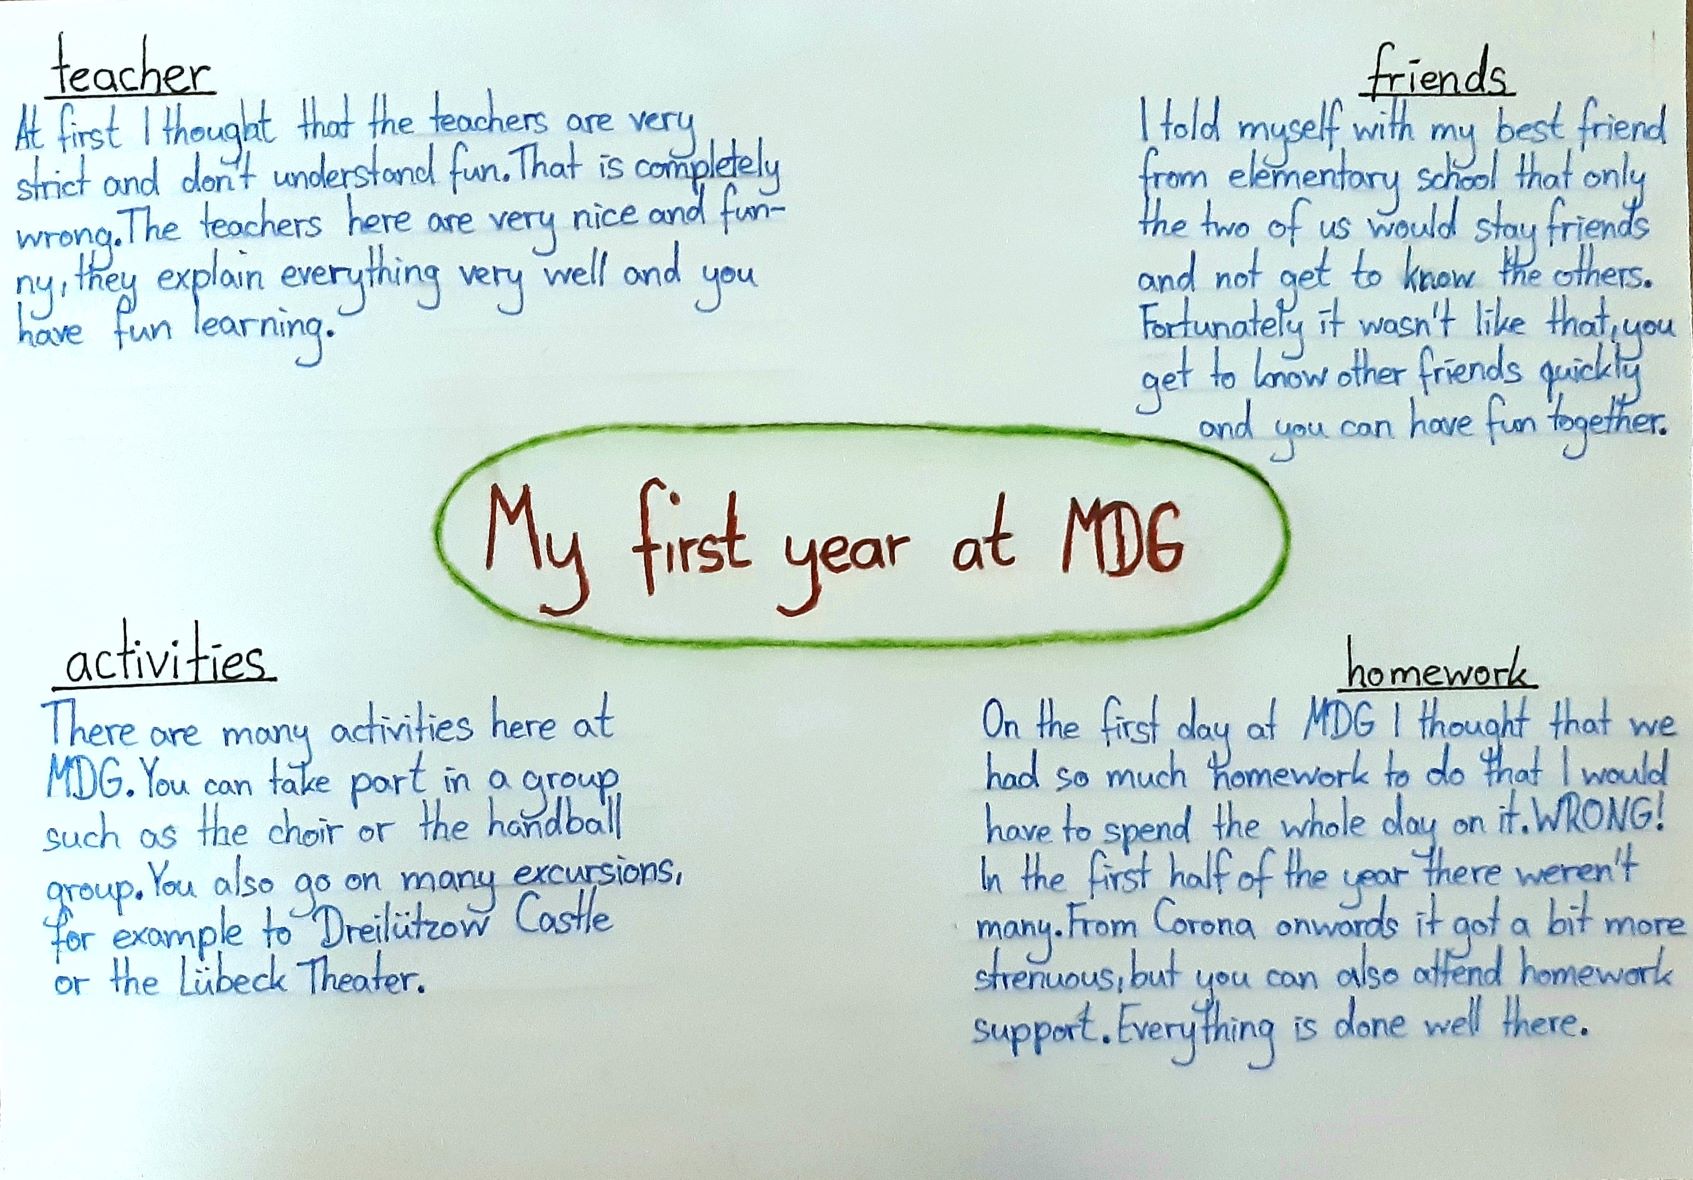 teacher
At first I thought that the teachers are very
strict and don't understand fun. That is completely
wrong. The teachers here are very nice and fun-
ny, they explain everything very well and you
have fun learning.
friends
I told myself with my best friend
from elementary school that only
the two of us would stay friends
and not get to know the others.
Fortunately it wasn't like that, you
get to know other friends quickly
and you can have fun together.
My first year at MDG
activities
There are many activities here at
MDG. You can take part in a group
such as the choir or the handball
group. You also go on many excursions,
for example to Dreilützow Castle
or the Lübeck Theater.
homework
On the first day at MDG I thought that we
had so much homework to do that I would
have to spend the whole day on it. WRONG!
In the first half of the year there weren't
many. From Corona onwards it got a bit more
strenuous, but you can also attend homework
support. Everything is done well there.